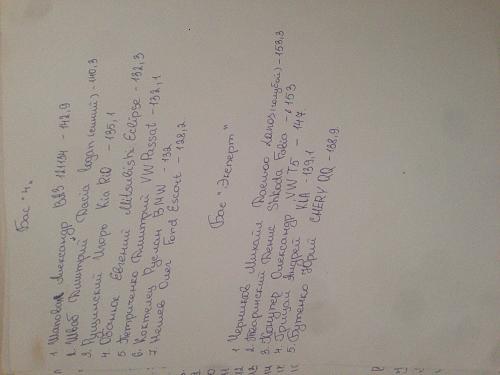 Бас "4"
1 Шаповал Александр ВАЗ 21134 - 142,9
2. Шваб Дмитрий Dacia Logan (синий) - 140,3
3. Пушинский Игорь Kia Rio - 135,1
4. Обаниак Евгений Mitsubishi Eclipse - 132,3
5 Петриченко Дмитрий VW Passat - 132,1
6. Коктелец Руслан BMW - 132
7 Нешев Олег Ford Escort - 128,2
Бас "Эксперт"
1 Черников Михайл Daewoo Lanos (голубой) - 153,3
2. Тваринский Денис Shkoda Fabia - 153
3. Александр VW T5 - 147
4. Грицай Андрей KIA - 139,1
5. Бутенко Юрий CHERY QQ - 138,9